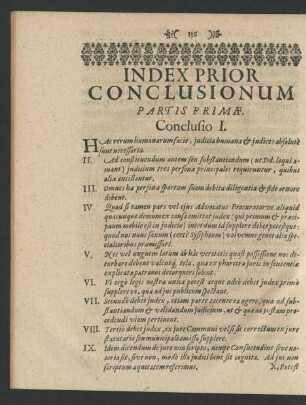 156
INDEX PRIOR
CONCLUSIONUM
PARTIS PRIMÆ.
Conclusio I.
HAc rerum humanarum facie, judicia humana & judices absolutè
sunt necessaria.
II. Ad constituendum autem seu substantiandum (ut Dd. loqui a-
mant) judicium tres personæ principales requiruntur, quibus
aliæ ancillantur.
III. Omnes hæ personæ spartam suam debita diligentia & fide ornare
debent.
IV. Quod si tamen pars vel ejus Advocatus Procuratorve aliquid
quacunque demum ex causa omittat judex; qui primum & præci-
puum mobile est in judicio) interdum id supplere debet potestque:
quod nos nunc saxum (certè Sysiphium) volvemus generalia spe-
cialioribus præmissuri.
V. Nec vel unguem latum ab hac veritatis quasi possessione nos de-
turbare debent valentq; tela, quæ ex pharetra juris in sententia
explicata patronos detorqueri solent.
VI. Vi ergò legis nostra unica potest atque adeò debet judex primò
supplere ea, quæ ad jus publicum spectant.
VII. Secundò debet judex, etiam parte tacente ea agere, quæ ad sub-
stantiandum & validandum judicium, ut & quæ ad justam proce-
dendi viam pertinent.
VIII. Tertiò debet judex, ex jure Communi vel si sic correctum ex jure
statutario seu municipali omissa supplere.
IX. Idem dicendum de jure non scripto, nempe Consuetudine sive no-
toria sit, sive non, modò illa judici bene sit cognita. Ad jus non
scriptum æquitatem referimus.
X. Potest